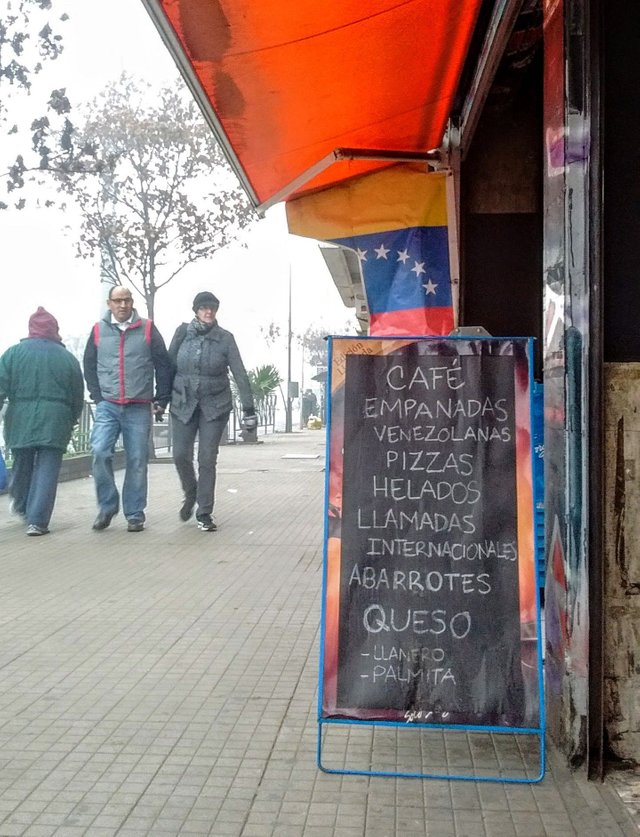 CAFÉ
EMPANADAS
VENEZOLANAS
PIZZAS
HELADOS
LLAMADAS
INTERNACIONALES
ABARROTES
QUESO
-LLANERO
-PALMITA